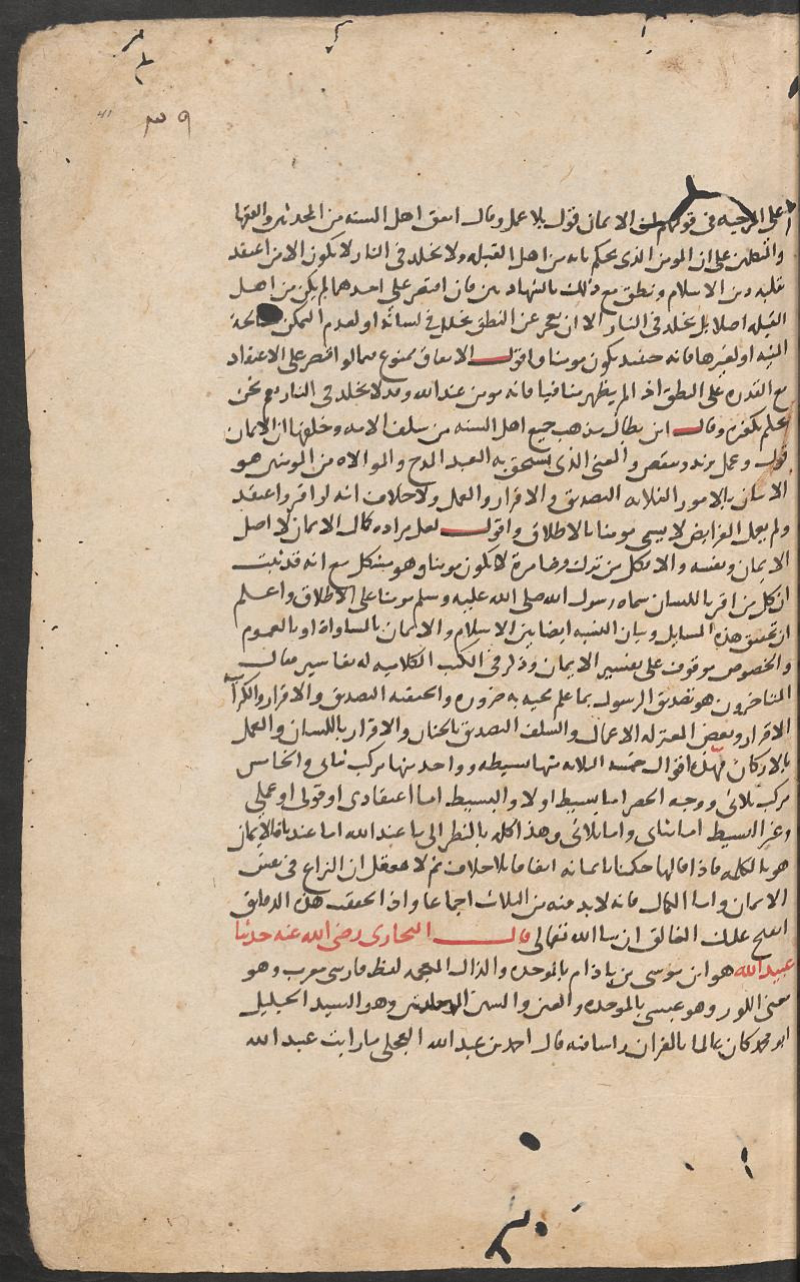 ٣٩
41
على المرجيه فى قولهم ان الايمان قول بلا عمل وقال اتفق اهل السنه من المحدثين والفقها
والمتكلمين على ان المومن الذى يحكم بانه من اهل القبله ولا يخلد فى النار لا يكون الا من اعتقد
بقلبه دين الاسلام ونطق مع ذلك بالشهادتين فان اقتصر على احدهما لم يكن من اهل
القبله اصلا بل يخلد فى النار الا ان يعجز عن النطق لخلل فى لسانه او لعدم التمكن لمعالجة
المنيه او لغيرها فانه حينئذ يكون مومنا واقول الاتفاق ممنوع فيما لو اقتصر على الاعتقاد
مع القدره على النطق اذ لم يظهر منافيا فانه مومن عند الله وقد لا يخلد فى النار نعم نحن
نحكم بكفره وقال ابن بطال مذهب جميع اهل السنه من سلف الامه وخلفها ان الايمان
قول وعمل يزيد وينقص والمعنى الذى يستحق به العبد المدح والموالاه من المومنين هو
الاتيان بالامور الثلاثه التصديق والاقرار والعمل ولا خلاف انه لو اقر واعتقد
ولم يعمل الفرايض لا يسمى مومنا بالاطلاق واقول لعل مراده كمال الايمان لا اصل
الايمان ونفسه والا فكل من ترك فرضا مرة لا يكون مومنا وهو مشكل مع انه قد ثبت
ان كل من اقر باللسان سماه رسول الله صلى الله عليه وسلم مومنا على الاطلاق واعلم
ان تحقيق هذه المسايل وبيان النسبه ايضا بين الاسلام والايمان بالمساواة او بالعموم
والخصوص موقوف على تفسير الايمان وذكر فى الكتب الكلاميه له تفاسير فقال
المتاخرون هو تصديق الرسول بما علم مجيه به ضروره والحنفيه التصديق والاقرار والكراميه
الاقرار وبعض المعتزله الاعمال والسلف التصديق بالجنان والاقرار باللسان والعمل
بالاركان فهذه اقوال خمسه الثلاثه منها بسيطه وواحد منها مركب ثنائى والخامس
مركب ثلاثى ووجه الحصر اما بسيط اولا والبسيط اما اعتقادى او قولى او عملى
وغير البسيط اما ثنائى واما ثلاثى وهذا كله بالنظر الى ما عند الله اما عندنا فالايمان
هو بالكلمه فاذا قالها حكمنا بايمانه اتفاقا بلا خلاف ثم لا تغفل ان النزاع فى نفس
الايمان واما الكمال فانه لا بد فيه من الثلاث اجماعا واذا تحققت هذه الدقايق
انفتح عليك المغالق ان شا الله تعالى قال البخارى رضى الله عنه حدثنا
عبيد الله هو ابن موسى بن باذام بالموحده والذال المعجمه لفظ فارسى معرب وهو
معنى اللوز وهو عبسى بالموحده والعين والسين المهملتين وهو السيد الجليل
ابو محمد كان عالما بالقران راسا فيه قال احمد بن عبد الله العجلى ما رايت عبد الله